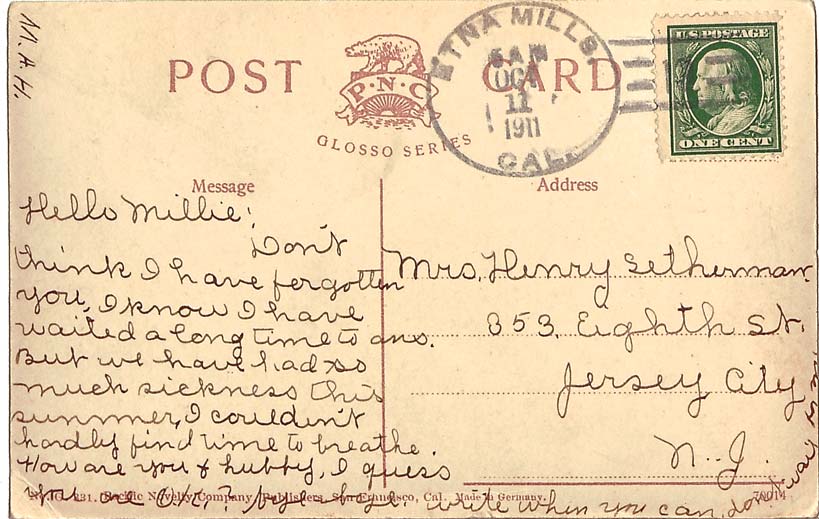 M. A. H.
POST CARD
P·N·C
GLOSSO SERIES
ETNA MILLS,
5 AM
OCT
11
1911
CAL.
U.S. POSTAGE
ONE CENT
Message
Address
Hello Millie!
Don't
think I have fergotten
you, I know I have
waited a long time to ans.
But we have had so
much sickness this
summer, I couldn't
hardly find time to breathe.
How are you & hubby, I guess
you are O.K.? bye-bye. write when you can, don't wait
Mrs. Henry
353. Eighth St.
Jersey City
N. J.
Pacific Novelty Company, Publishers, San Francisco, Cal. Made in Germany.